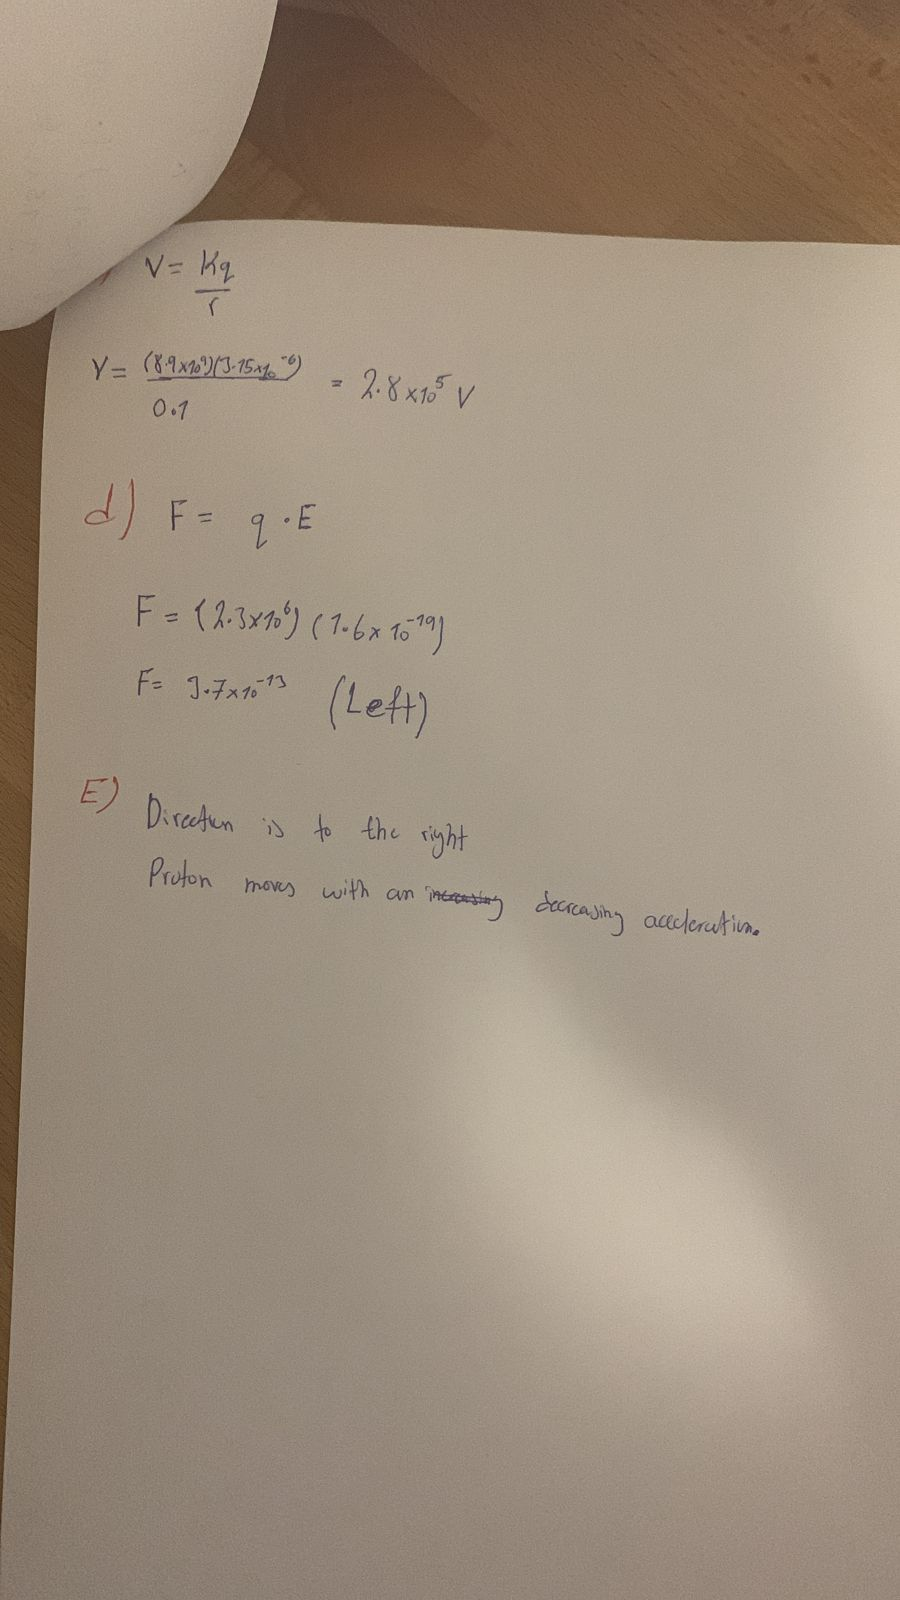 V = Kq
r
V = (8.9x10⁹)(3.15x10⁻⁶)
0.1
= 2.8x10⁵ V
d) F = q · E
F = (2.3x10⁶) (1.6x10⁻¹⁹)
F = 3.7x10⁻¹³ (Left)
E)
Direction is to the right
Proton moves with an increasing decreasing acceleration.